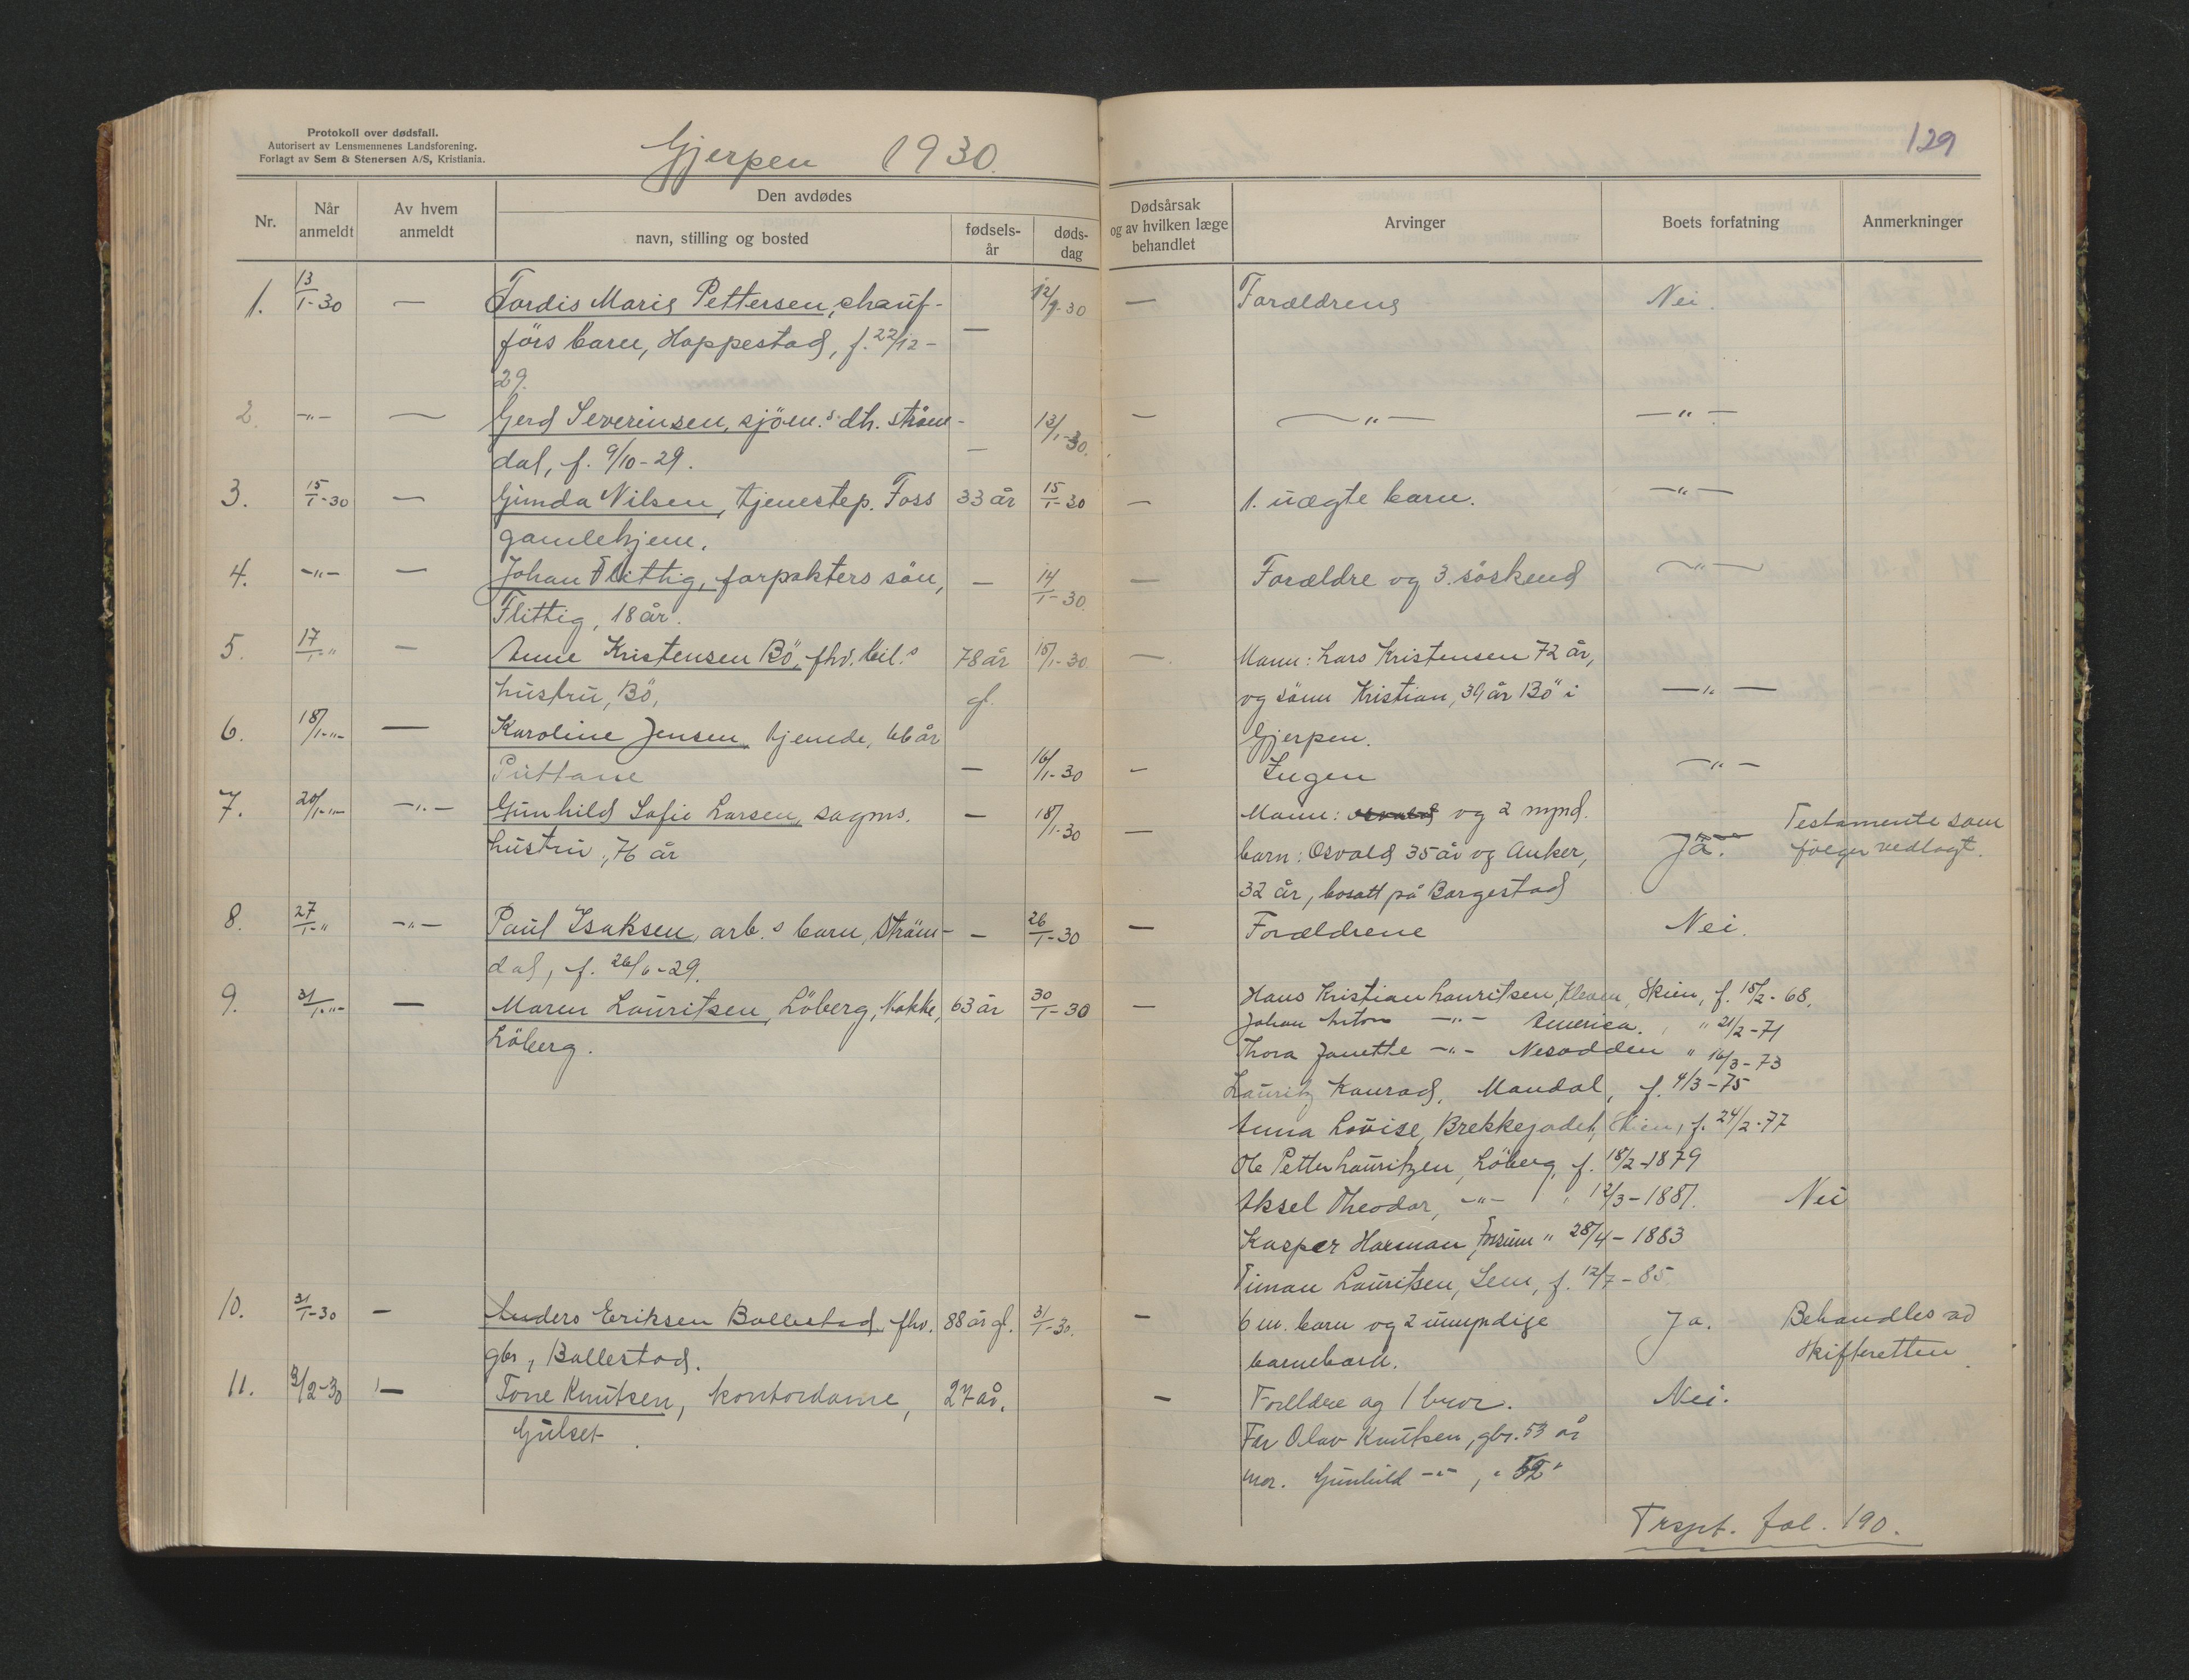 Protokoll over dødsfall.
Autorisert av Lensmennenes Landsforening.
Forlagt av Sem & Stenersen A/S, Kristiania.
Gjerpen 1930.
129
Nr.
Når anmeldt
Av hvem anmeldt
Den avdødes
navn, stilling og bosted
fødsels-år
døds-dag
Dødsårsak og av hvilken læge behandlet
Arvinger
Boets forfatning
Anmerkninger
1. 13/1-30 — Tordis Marie Pettersen, chauf- 12/1-30 — Forældrene Nei.
förs barn, Hoppestad, f. 22/12- —
29.
2. -"- — Gerd Severinsen, sjöm.s dtr. Ström- 13/1-30. — —"— —"—
dal, f. 9/10-29. —
3. 15/1-30 — Gunda Nilsen, tjenestep. Foss 33 år 15/1-30 — 1. uægte barn. —"—
gamlehjem.
4. -"- — Johan Flittig, forpakters sön, — 14/1-30 — Forældre og 3. söskend —"—
Flittig, 18 år.
5. 17/1-" — Anne Kristensen Bö, fhv. 78 år 15/1-30 — Mann: Lars Kristensen 72 år,
hustru, Bö, gl. og sönn Kristian, 39 år Bö i —"—
6. 18/1-"- — Karoline Jensen, tjenede, 66 år Gjerpen.
Puttane — 16/1-30 — Ingen —"—
7. 20/1-"- -"- Gunhild Sofie Larsen, sagms. — 18/1-30 — Mann: og 2 mynd. Testamente som
hustru, 76 år barn: Osvald 35 år og Anker, Ja. följer vedlagt.
32 år, bosatt på Borgestad
8. 27/1-" -"- Paul Isaksen, arb.s barn, Ström- — 26/1-30 — Forældrene Nei.
dal, f. 26/6-29.
9. 31/1-"- — Maren Lauritsen, Löberg, 63 år 30/1-30 — Hans Kristian Lauritsen, Kleven, Skien, f. 15/2-68.
Löberg. Johan Anton -"- America. " 21/2-71
Thora Janette -"- Nesodden " 16/3-73
Lauritz Konrad, Mandal, f. 4/3-75
Anna Lovise, Brekkejodet, Skien, f. 24/2-77
Ole Petter Lauritzen, Löberg, f. 18/2-1879
Aksel Theodor, -"- " 12/3-1881. Nei
Kasper Herman, Fossum " 28/4-1883
Timan Lauritsen, Sem, f. 12/7-85
10. 31/1-30 — Anders Eriksen Ballestad, fhv. 88 år gl. 31/1-30. — 6 m. barn og 2 umyndige Ja. Behandles av
gbr, Ballestad. barnebarn. Skifteretten
11. 3/2-30 — Tone Knutsen, kontordame, 27 år. — Foreldre og 1 bror. Nei.
Gulset. Far Olav Knutsen, gbr. 53 år
Mor. Gunhild -"-, " 52 "
Trspt. fol. 190.